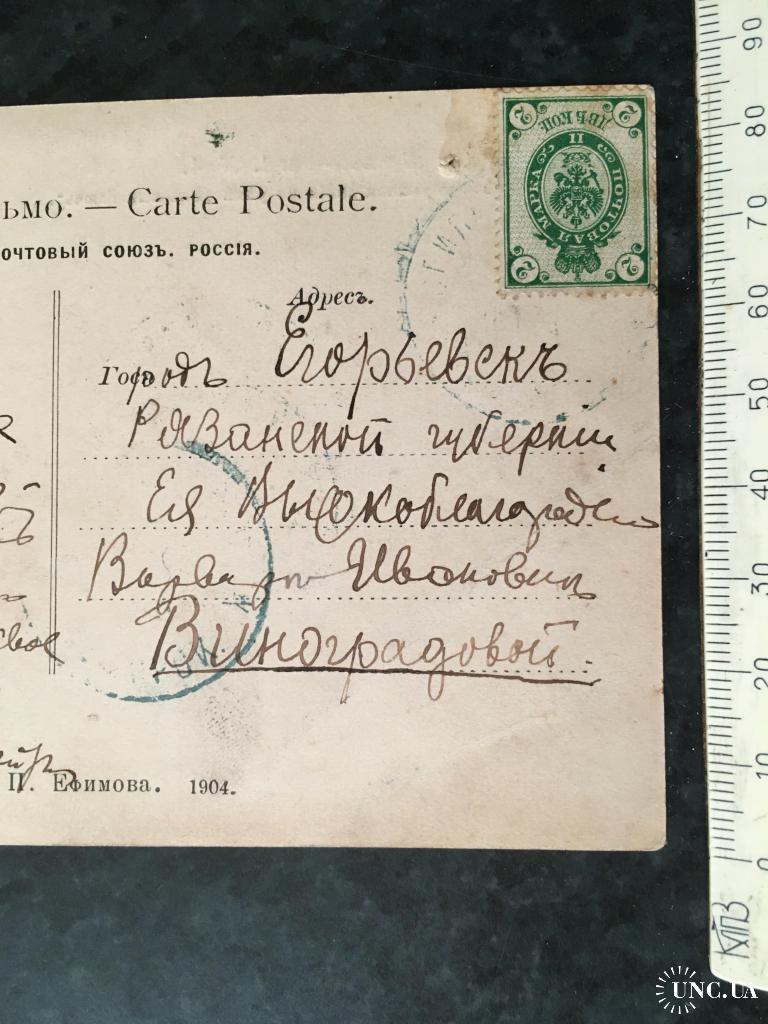 ьмо. — Carte Postale.
очтовый союзъ. РОССІЯ.
2 ДВѢ КОП. 2
ПОЧТОВАЯ МАРКА
2 2
Адресъ.
Городъ Егорьевскъ
Рязанской губерніи
Ея Высокоблагородію
Варваре Ивановне
Виноградовой.
П. Ефимова. 1904.
90
80
70
60
50
40
30
20
10
0
КМПЗ
UNC.UA